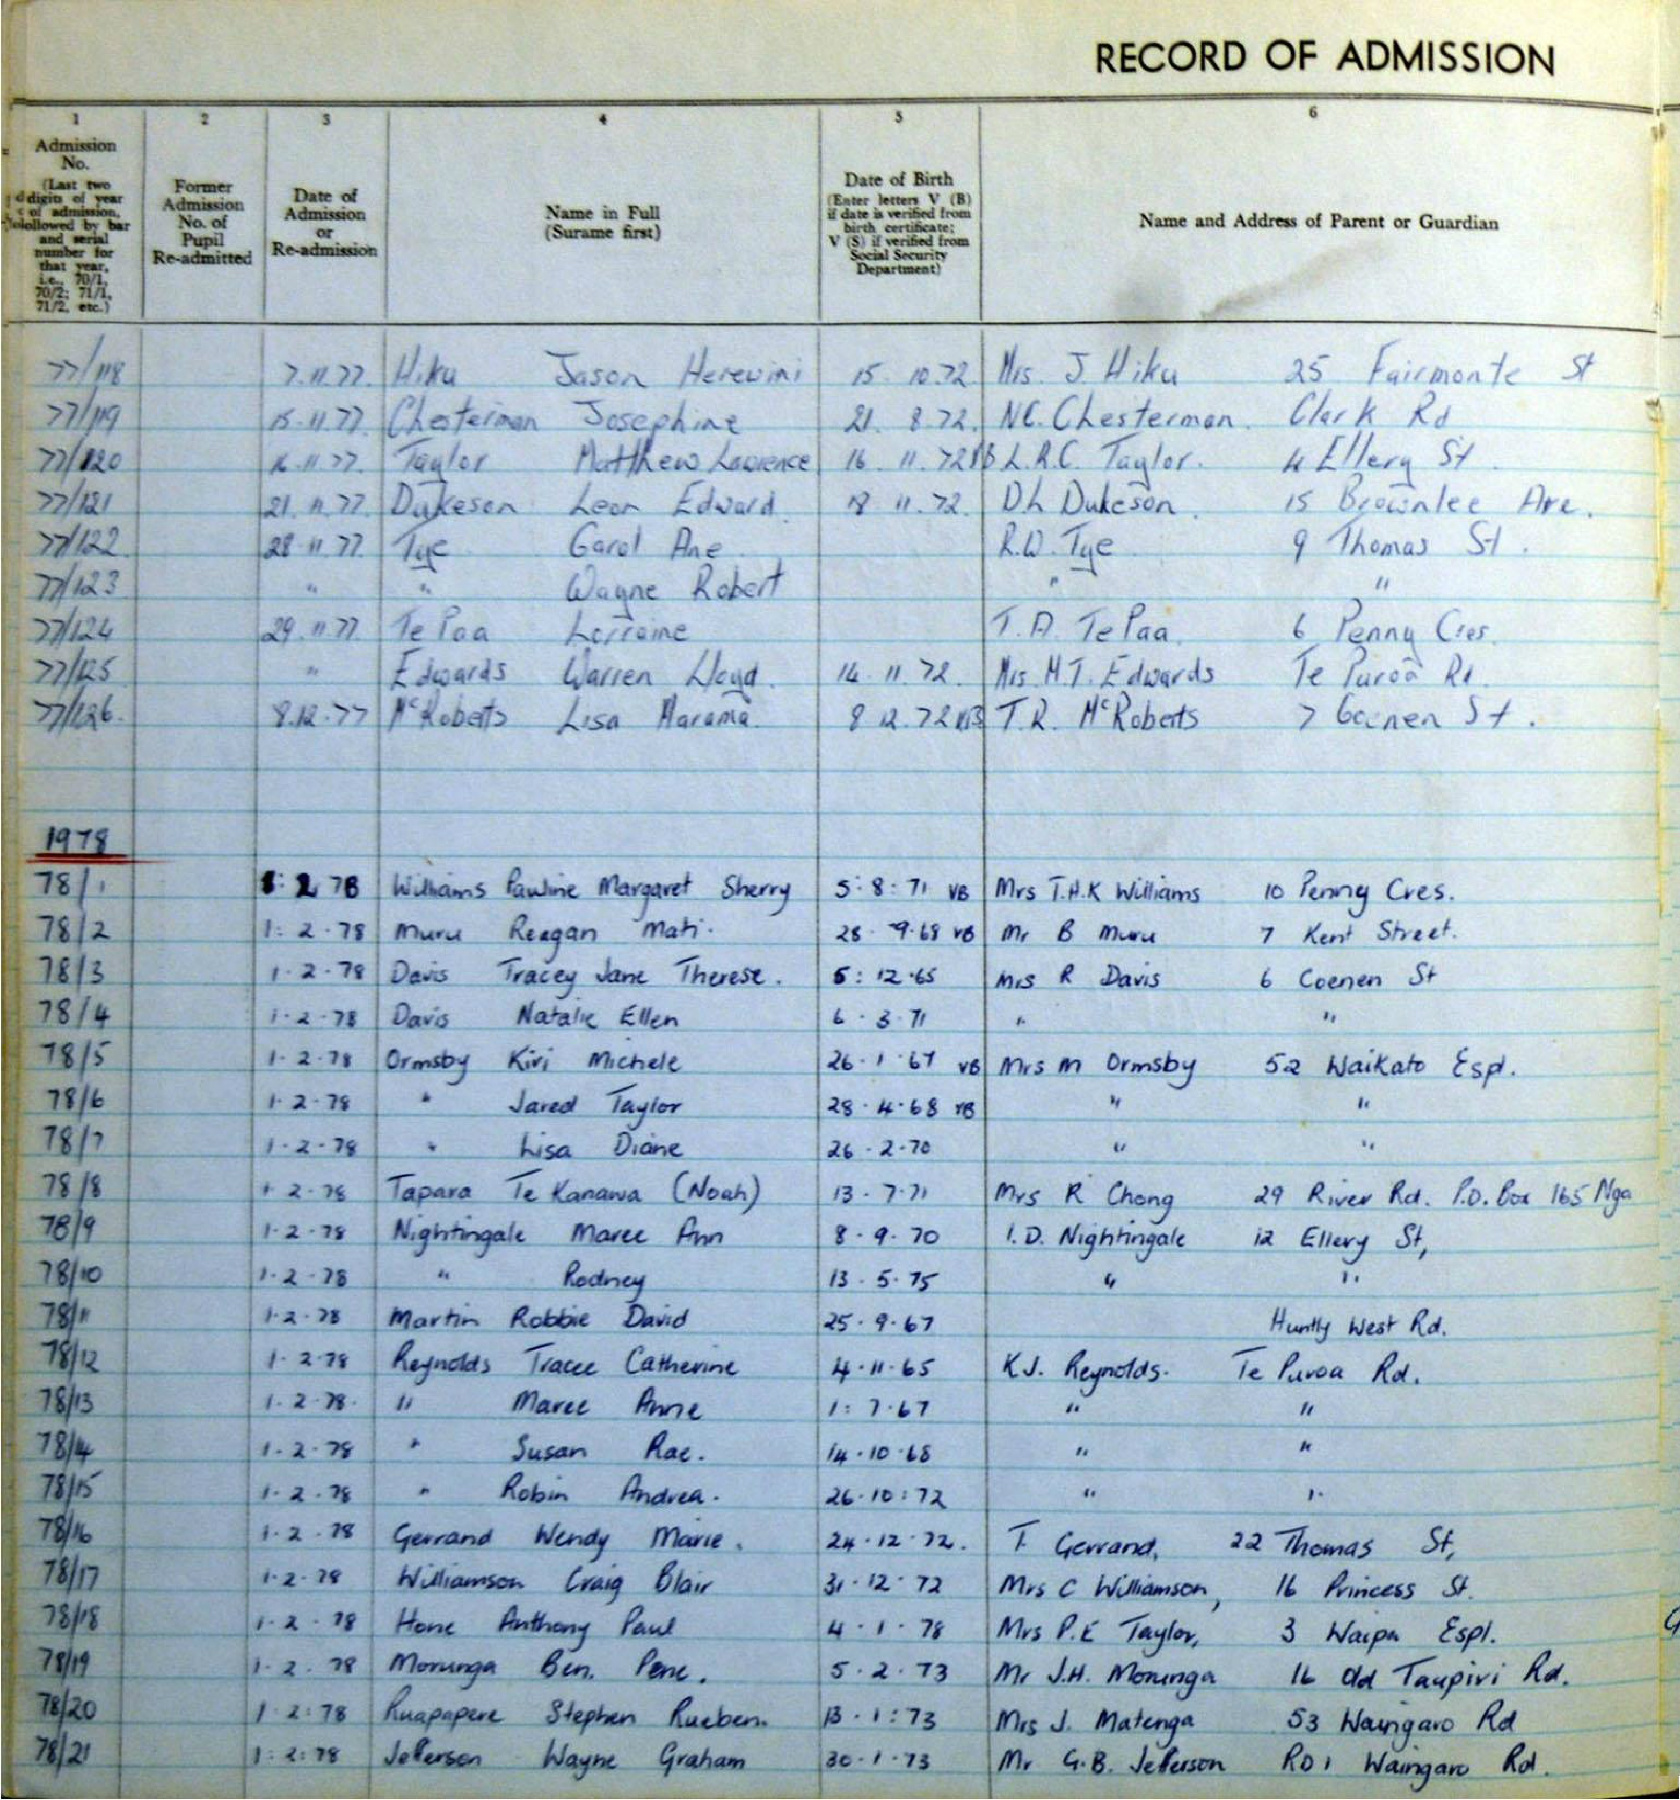 RECORD OF ADMISSION
1 2 3 4 5 6
Admission No. (Last two digits of year of admission, followed by bar and serial number for that year, i.e., 70/1, 70/2; 71/1, 71/2, etc.)
Former Admission No. of Pupil Re-admitted
Date of Admission or Re-admission
Name in Full (Surame first)
Date of Birth (Enter letters V (B) if date is verified from birth certificate; V (S) if verified from Social Security Department)
Name and Address of Parent or Guardian
77/118 7.11.77. Hiku Jason Herewini 15. 10.72. Mrs. J. Hiku 25 Fairmonte St
77/119 15.11.77. Chesterman Josephine 21. 8.72. N.C. Chesterman. Clark Rd
77/120 16.11.77. Taylor Matthew Lawrence 16. 11.72 VB L.R.C. Taylor. 4 Ellery St.
77/121 21.11.77. Dukeson Leon Edward. 18 11.72. D.L Dukeson. 15 Brownlee Ave.
77/122 28.11.77. Tye Carol Ane R.W. Tye 9 Thomas St.
77/123 " " Wayne Robert " "
77/124 29.11.77 Te Paa Lorraine T.A. Te Paa. 6 Penny Cres.
77/125 " Edwards Warren Lloyd. 14.11.72. Mrs. M.T. Edwards Te Puroa Rd.
77/126. 8.12.77 McRoberts Lisa Marama. 8 12.72 VB T.R. McRoberts 7 Coenen St.
1978
78/1 1:2 78 Williams Pauline Margaret Sherry 5:8:71 VB Mrs T.H.K Williams 10 Penny Cres.
78/2 1:2.78 Muru Reagan Mati. 28.9.68 VB Mr B Muru 7 Kent Street.
78/3 1.2.78 Davis Tracey Jane Therese. 5:12.65 Mrs R Davis 6 Coenen St
78/4 1.2.78 Davis Natalie Ellen 6.3.71 " "
78/5 1.2.78 Ormsby Kiri Michele 26.1.67 VB Mrs M Ormsby 52 Waikato Espl.
78/6 1.2.78 " Jared Taylor 28.4.68 VB " "
78/7 1.2.78 " Lisa Diane 26.2.70 " "
78/8 1 2.78 Tapara Te Kanawa (Noah) 13.7.71 Mrs R Chong 29 River Rd. P.O. Box 165 Nga
78/9 1.2.78 Nightingale Maree Ann 8.9.70 I.D. Nightingale 12 Ellery St,
78/10 1.2.78 " Rodney 13.5.75 " "
78/11 1.2.78 Martin Robbie David 25.9.67 Huntly West Rd.
78/12 1.2.78 Reynolds Tracee Catherine 4.11.65 K.J. Reynolds. Te Puroa Rd.
78/13 1.2.78. " Maree Anne 1:7.67 " "
78/14 1.2.78 " Susan Rae. 14.10.68 " "
78/15 1.2.78 " Robin Andrea. 26.10:72 " "
78/16 1.2.78 Gerrand Wendy Marie. 24.12.72. T Gerrand, 22 Thomas St,
78/17 1.2.78 Williamson Craig Blair 31.12.72 Mrs C Williamson, 16 Princess St.
78/18 1.2.78 Hone Anthony Paul 4.1.78 Mrs P.E Taylor, 3 Waipa Espl.
78/19 1.2.78 Morunga Ben. Pene. 5.2.73 Mr J.H. Morunga 16 Old Taupiri Rd.
78/20 1 2:78 Ruapapere Stephen Rueben. 13.1:73 Mrs J. Matenga 53 Waingaro Rd
78/21 1:2:78 Jefferson Wayne Graham 30.1.73 Mr G.B. Jefferson RD1 Waingaro Rd.